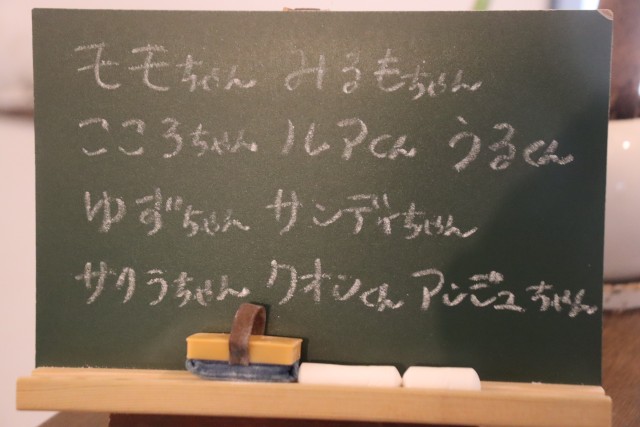 モモちゃん みるもちゃん
こころちゃん ルアくん うるくん
ゆずちゃん サンディちゃん
サクラちゃん クオンくん アンジュちゃん